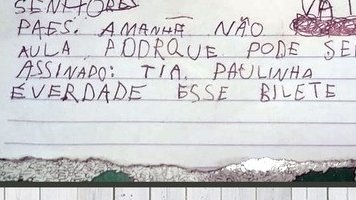 SENHORES VAI
PAES. AMANHÃ NÃO
AULA PODRQUE PODE SE
ASSINADO: TIA. PAULINHA
É VERDADE ESSE BILETE